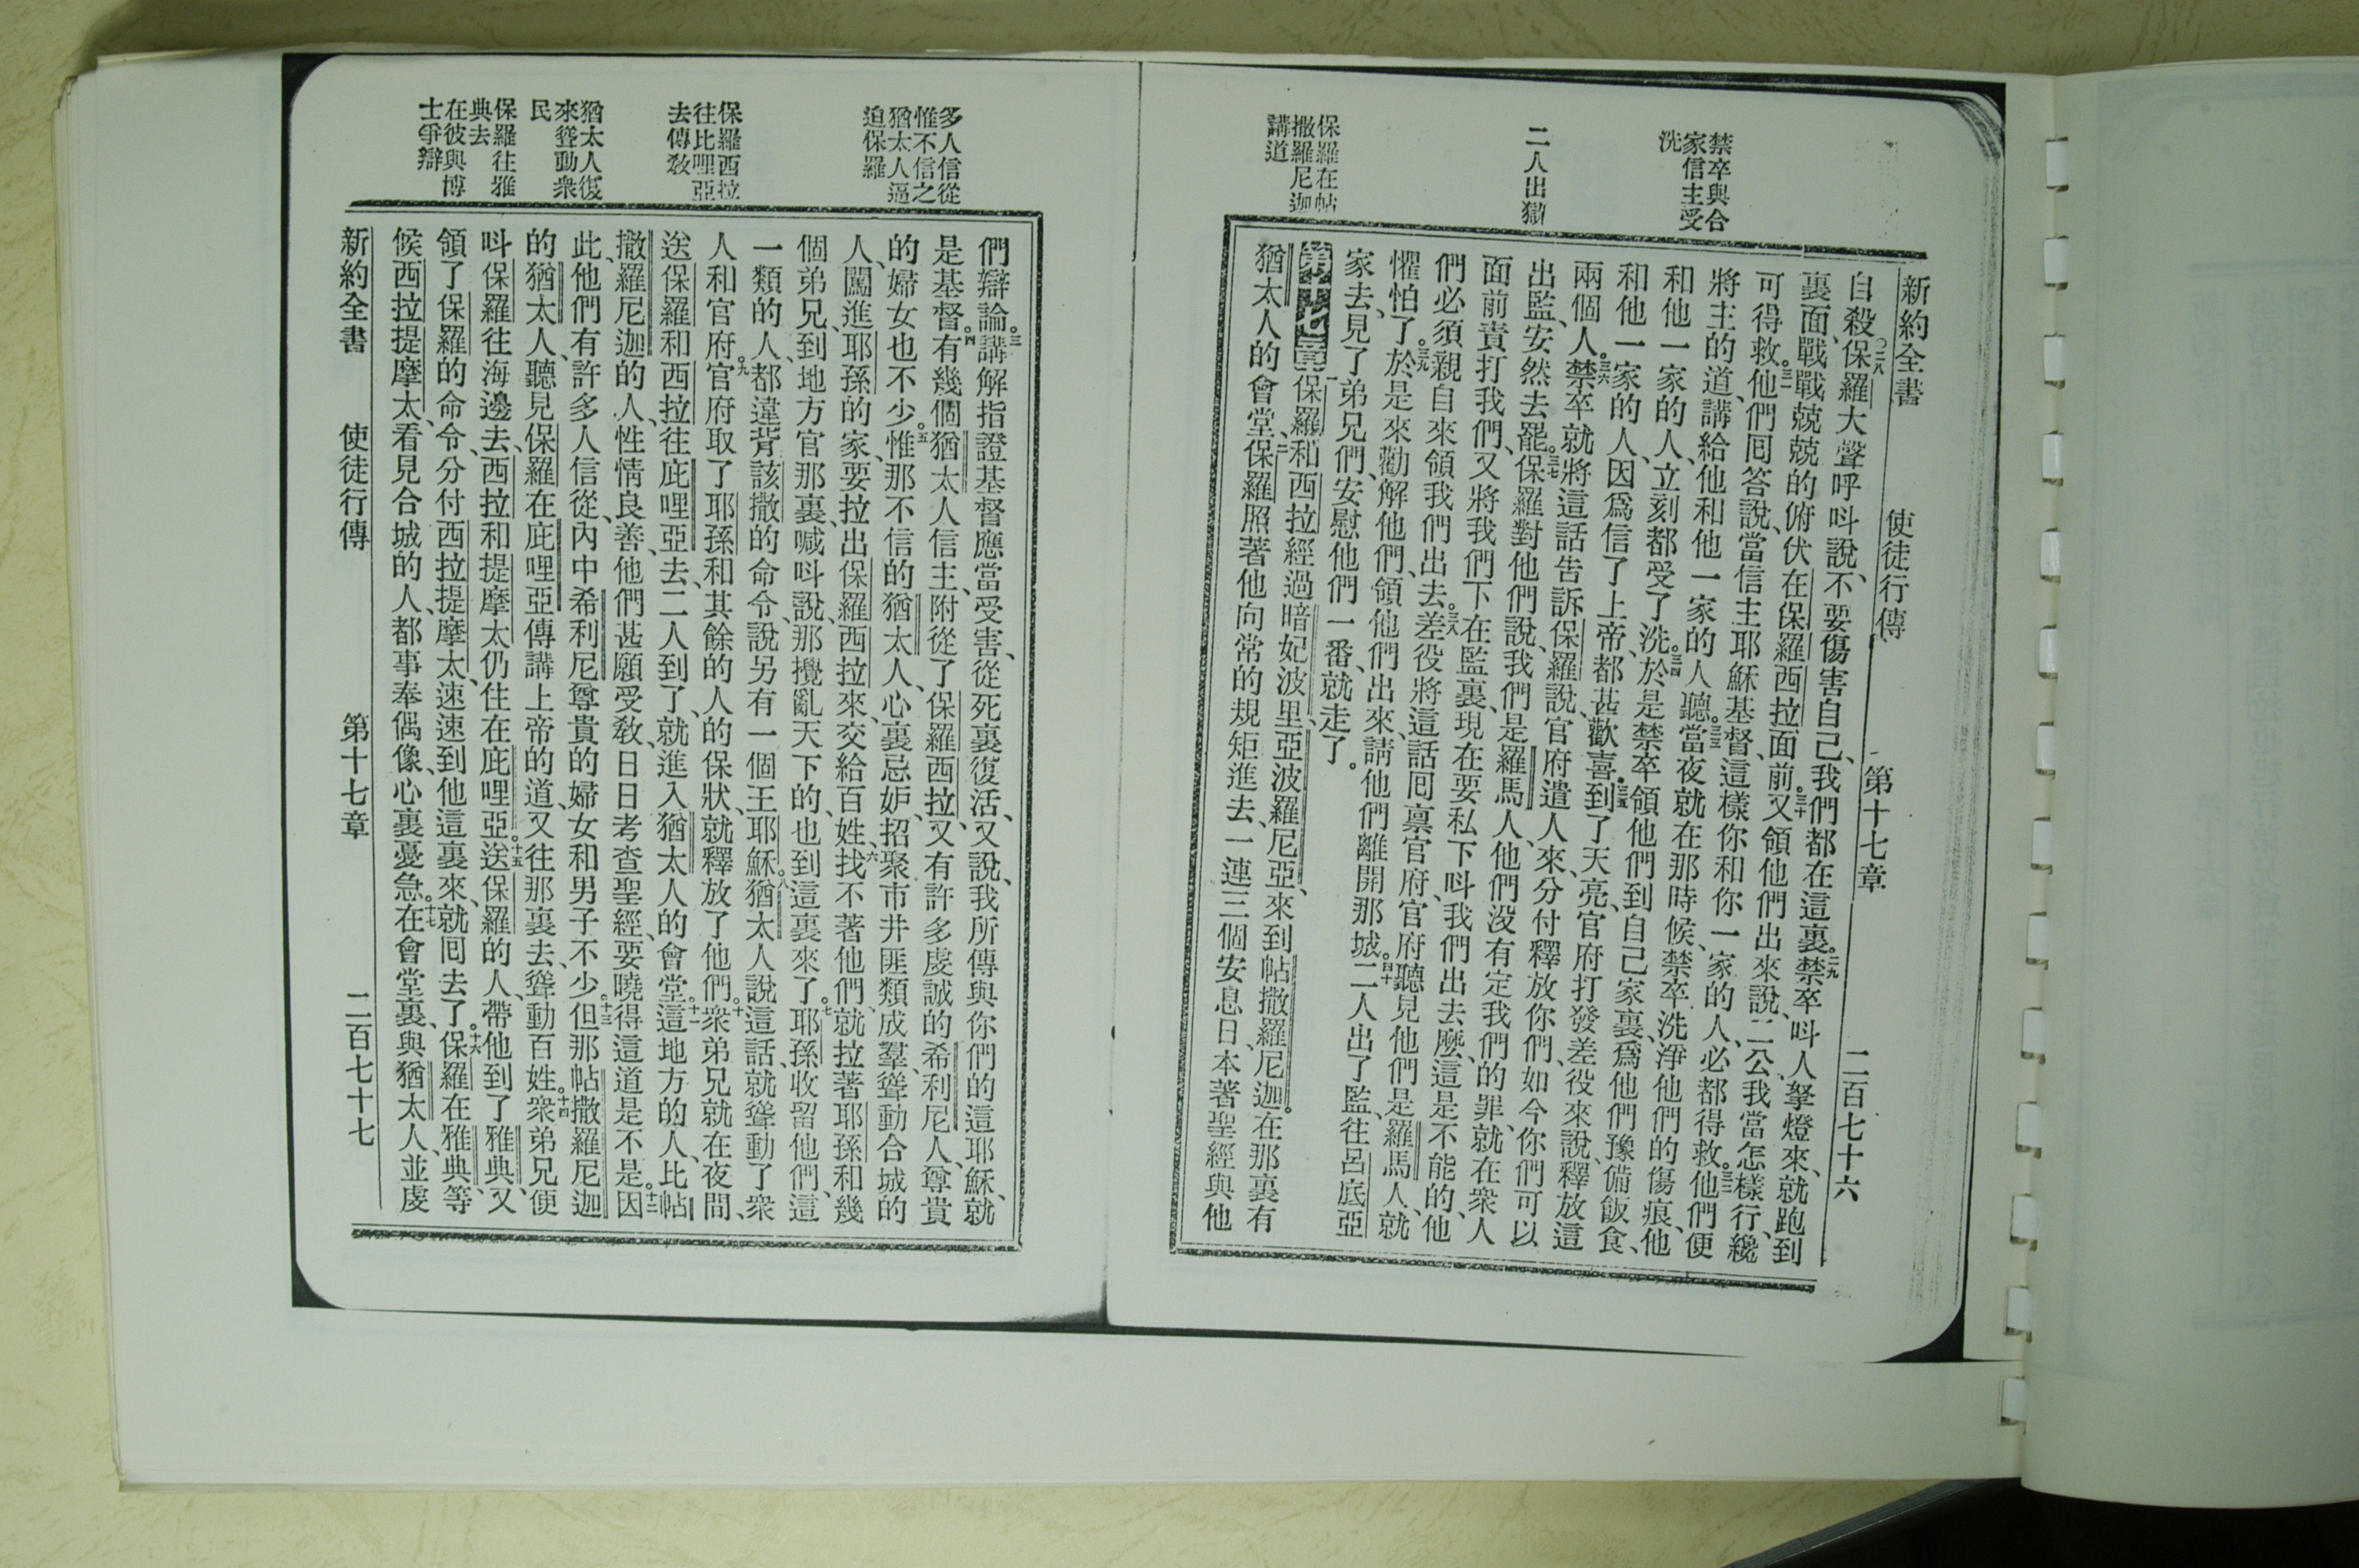 禁卒與合
家信主受
洗
二人出獄
保羅在帖
撒羅尼迦
講道
新約全書 使徒行傳 第十七章 二百七十六
自殺。二八保羅大聲呼呌說、不要傷害自己、我們都在這裏。二九禁卒呌人拏燈來、就跑到
裏面、戰戰兢兢的俯伏在保羅西拉面前。三十又領他們出來說、二公、我當怎樣行、纔
可得救。三一他們囘答說、當信主耶穌基督、這樣你和你一家的人、必都得救。三二他們便
將主的道、講給他和他一家的人聽。三三當夜就在那時候、禁卒洗淨他們的傷痕、他
和他一家的人、立刻都受了洗。三四於是禁卒領他們到自己家裏、爲他們豫備飯食、
和他一家的人、因爲信了上帝、都甚歡喜。三五到了天亮、官府打發差役來說、釋放這
兩個人。三六禁卒就將這話告訴保羅說、官府遣人來、分付釋放你們、如今你們可以
出監、安然去罷。三七保羅對他們說、我們是羅馬人、他們沒有定我們的罪、就在衆人
面前責打我們、又將我們下在監裏、現在要私下呌我們出去麼、這是不能的、他
們必須親自來領我們出去。三八差役將這話囘稟官府、官府聽見他們是羅馬人、就
懼怕了。三九於是來勸解他們、領他們出來、請他們離開那城。四十二人出了監、往呂底亞
家去、見了弟兄們、安慰他們一番、就走了。
第十七章一保羅和西拉經過暗妃波里、亞波羅尼亞、來到帖撒羅尼迦。在那裏有
猶太人的會堂、二保羅照著他向常的規矩進去、一連三個安息日、本著聖經與他
多人信從
惟不信之
猶太人逼
迫保羅
保羅西拉
往比哩亞
去傳敎
猶太人復
來聳動衆
民
保羅往雅
典去
在彼與博
士爭辯
們辯論。三講解指證基督應當受害、從死裏復活、又說、我所傳與你們的這耶穌、就
是基督。四有幾個猶太人信主、附從了保羅西拉、又有許多虔誠的希利尼人、尊貴
的婦女也不少。五惟那不信的猶太人、心裏忌妒、招聚市井匪類成羣、聳動合城的
人、闖進耶孫的家、要拉出保羅西拉來、交給百姓、六找不著他們、就拉著耶孫和幾
個弟兄、到地方官那裏、喊呌說、那攪亂天下的、也到這裏來了。七耶孫收留他們、這
一類的人、都違背該撒的命令、說另有一個王耶穌。八猶太人說這話、就聳動了衆
人和官府。九官府取了耶孫和其餘的人的保狀、就釋放了他們。十衆弟兄就在夜間、
送保羅和西拉往庇哩亞去、二人到了、就進入猶太人的會堂。十一這地方的人、比帖
撒羅尼迦的人、性情良善、他們甚願受敎、日日考查聖經、要曉得這道是不是。十二因
此、他們有許多人信從、內中希利尼尊貴的婦女和男子不少。十三但那帖撒羅尼迦
的猶太人、聽見保羅在庇哩亞傳講上帝的道、又往那裏去、聳動百姓。十四衆弟兄便
呌保羅往海邊去、西拉和提摩太仍住在庇哩亞。十五送保羅的人、帶他到了雅典、又
領了保羅的命令、分付西拉提摩太、速速到他這裏來、就囘去了。十六保羅在雅典、等
候西拉提摩太、看見合城的人、都事奉偶像、心裏憂急。十七在會堂裏、與猶太人、並虔
新約全書 使徒行傳 第十七章 二百七十七